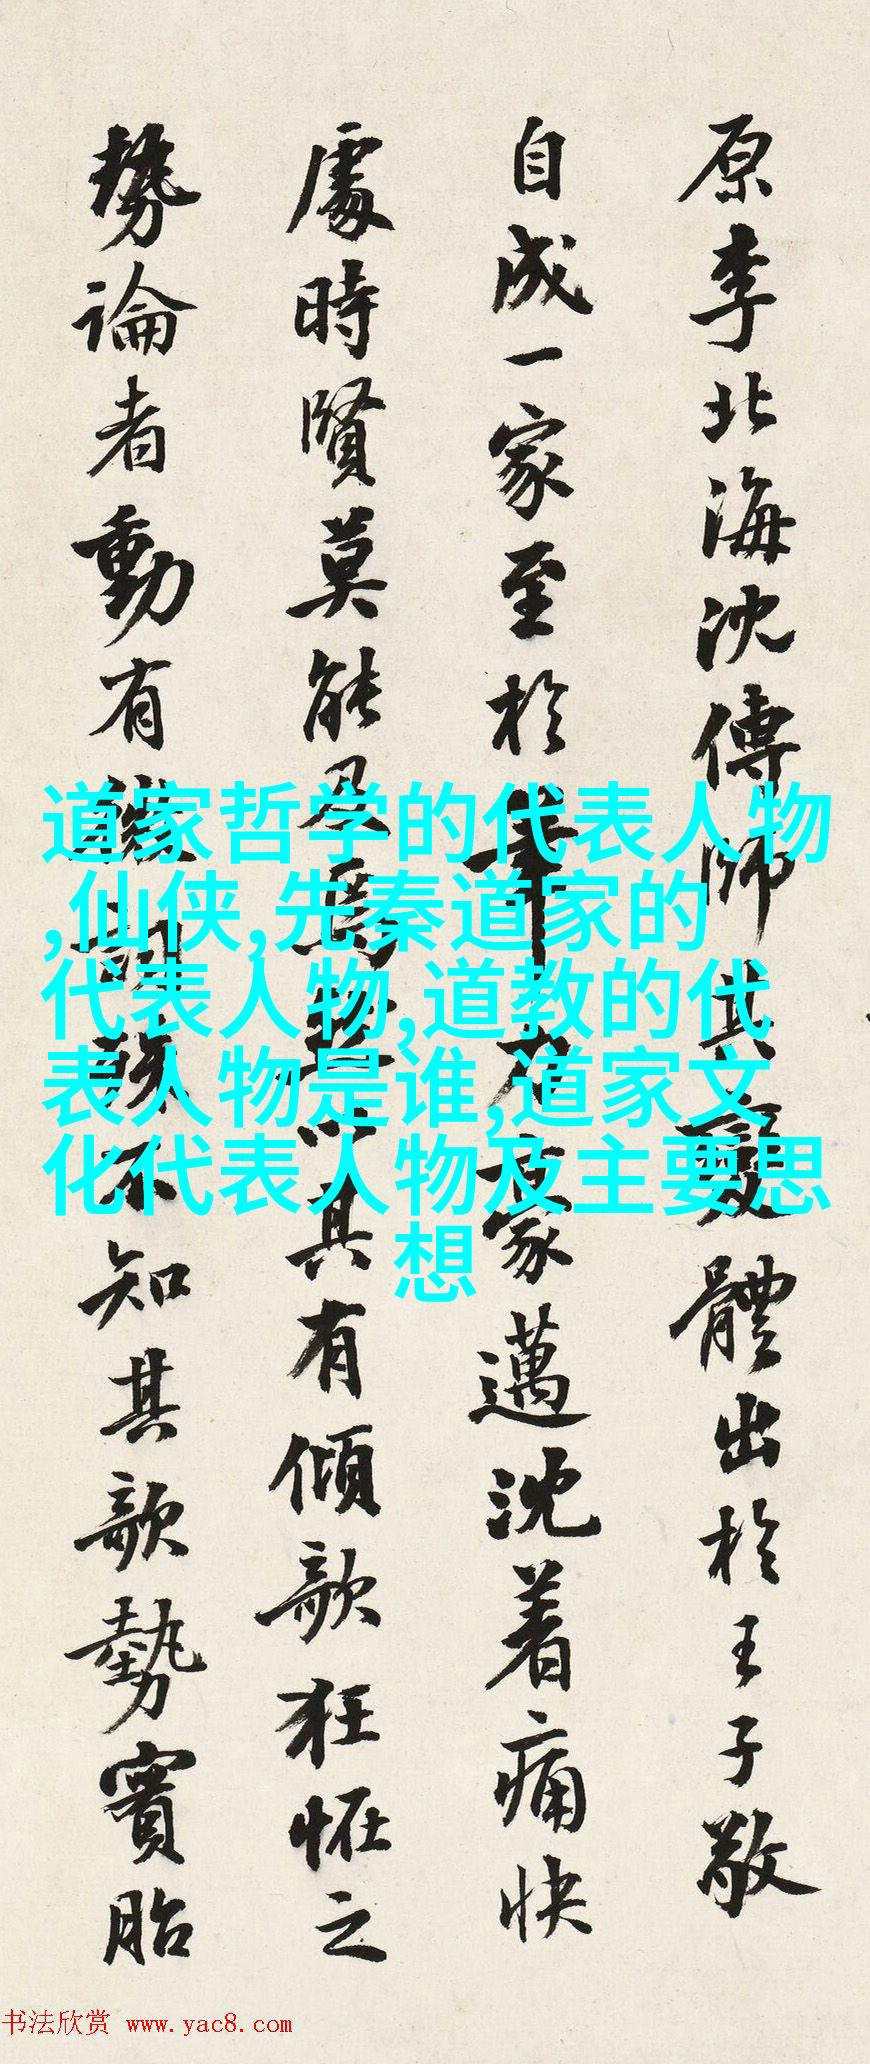 原李北海沈傳師其變體出於王子敬
自成一家至於筆力豪邁沈着痛快
處時賢莫能及焉然以其有傾欹狂怪之
勢論者動有殊不知其欹勢實胎
道家哲学的代表人物
,仙侠,先秦道家的
代表人物,道教的代
表人物是谁,道家文
化代表人物及主要思
想
书法欣赏 www.yac8.com